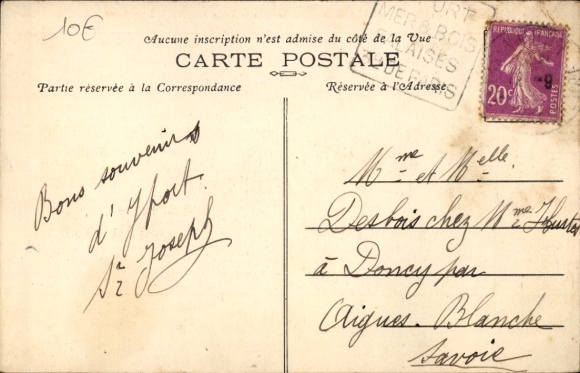 10€
Aucune inscription n'est admise du côté de la Vue
CARTE POSTALE
Partie réservée à la Correspondance
Réservée à l'Adresse
MER BOIS
FALAISES
PARIS
REPUBLIQUE FRANCAISE
20c
POSTES
Bons souvenirs
d'Yport.
Sr Joseph
Mme et Melle.
Desbois chez Mme
à Doncy par
Aigues-Blanche
Savoie